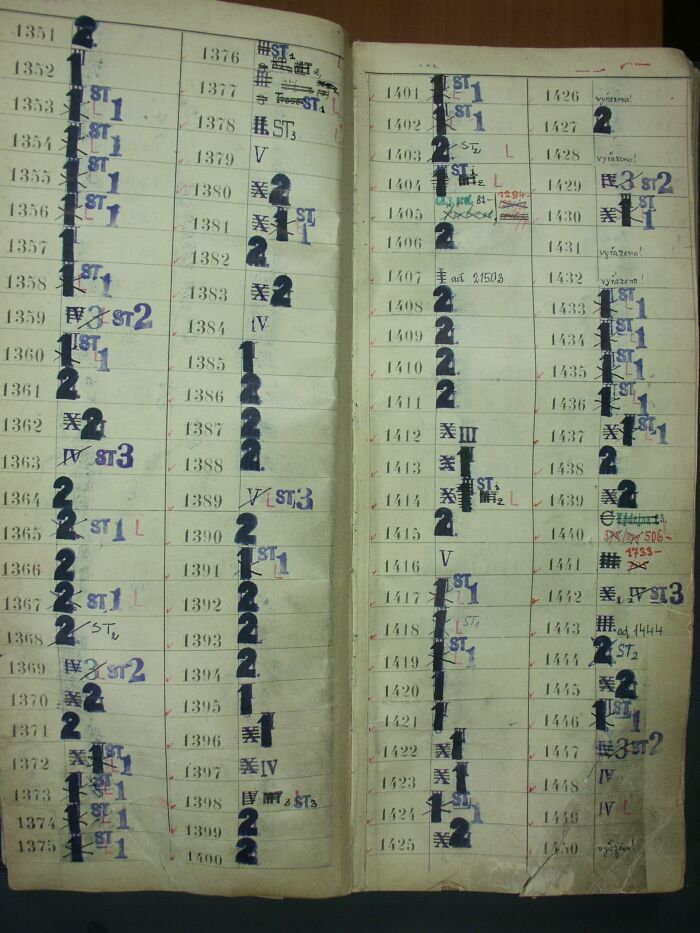 1351 2.
1352 1
1353 1 ST 1 L
1354 1 ST 1 L
1355 1 ST 1 L
1356 1 ST 1 L
1357 1
1358 1 ST 1 L
1359 IV 3 ST 2
1360 1 ST 1 L
1361 2.
1362 X 2
1363 IV ST 3
1364 2
1365 2 ST 1 L
1366 2
1367 2 ST 1 L
1368 2 ST2
1369 IV 3 ST 2
1370 X 2
1371 2
1372 X 1 ST 1 L
1373 1 ST 1 L
1374 1 ST 1 L
1375 1 ST 1 L
1376 III ST 1 L
1377 ST 1 L
1378 II. ST3
1379 V
1380 X 2
1381 X 1 ST 1 L
1382 2.
1383 X 2
1384 IV
1385 1
1386 2.
1387 2
1388 2.
1389 V L ST 3
1390 2
1391 1 ST 1 L
1392 2
1393 2.
1394 2
1395 1
1396 X 1
1397 X IV
1398 IV L ST3
1399 2
1400 2
1401 1 ST 1 L
1402 1 ST 1 L
1403 2. ST2 L
1404 1 ST 1 L
1405 81- 1294-
1406 2
1407 ad 21503
1408 2
1409 2.
1410 2.
1411 2.
1412 X III
1413 X 1
1414 X ST 1 L
1415 2.
1416 V
1417 1 ST 1 L
1418 1 ST1 L
1419 1 ST 1 L
1420 1
1421 1
1422 X 1
1423 X 1
1424 1 ST 1 L
1425 X 2
1426 vyřazeno!
1427 2
1428 vyřazeno!
1429 IV 3 ST 2
1430 X 1 ST 1 L
1431 vyřazeno!
1432 vyřazeno!
1433 1 ST 1 L
1434 1 ST 1 L
1435 1 ST 1 L
1436 1 ST 1 L
1437 X 1 ST 1 L
1438 2
1439 X 2
1440 506-
1441 1733-
1442 X IV ST 3
1443 III. ad 1444
1444 2 ST2
1445 X 2
1446 1 ST 1 L
1447 IV 3 ST 2
1448 IV
1449 IV L
1450 vyřazeno!